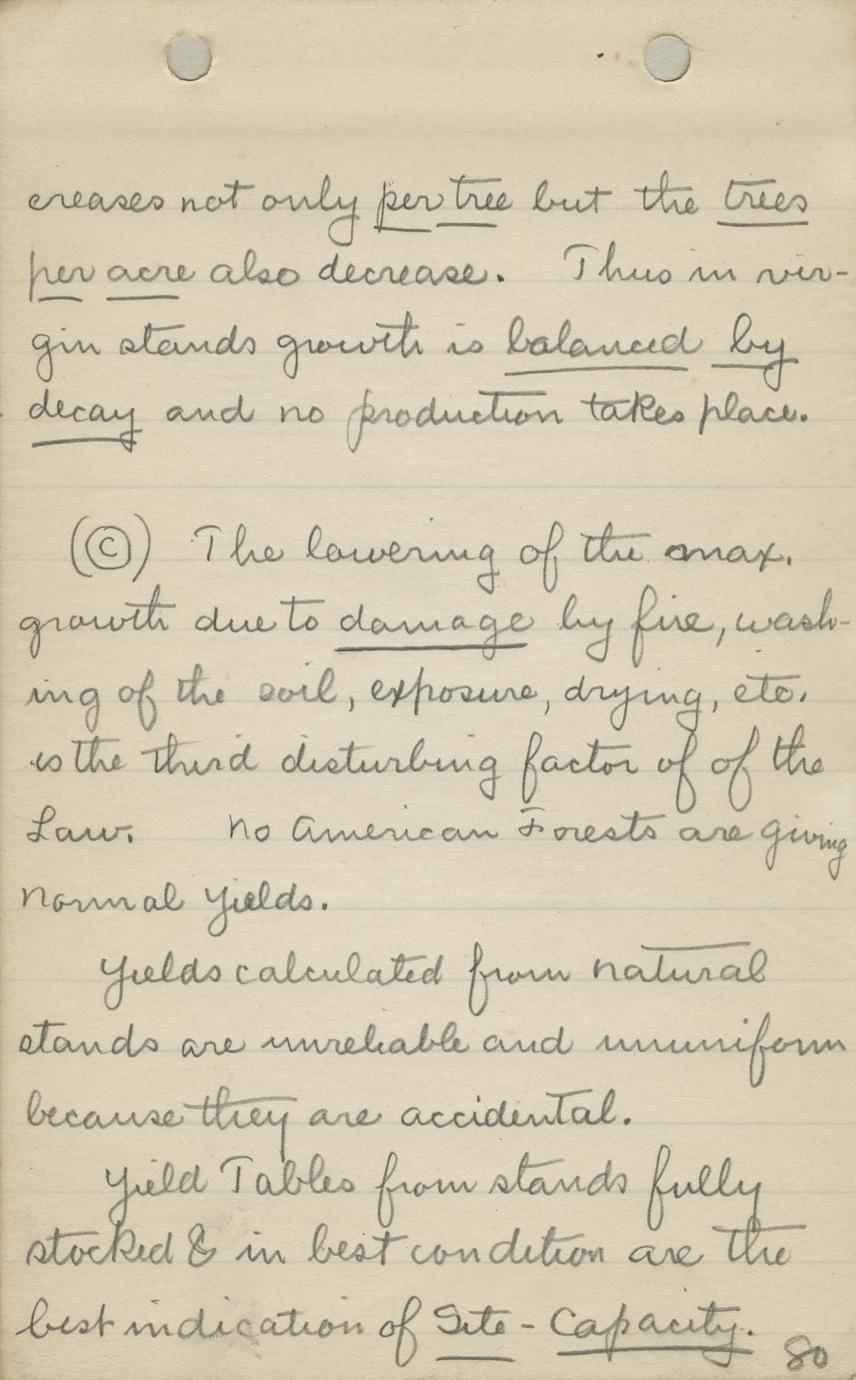 creases not only per tree but the trees
per acre also decrease. Thus in vir-
gin stands growth is balanced by
decay and no production takes place.
(C) The lowering of the max.
growth due to damage by fire, wash-
ing of the soil, exposure, drying, etc.
is the third disturbing factor of of the
Law. No American Forests are giving
normal yields.
Yields calculated from natural
stands are unreliable and ununiform
because they are accidental.
Yield Tables from stands fully
stocked & in best condition are the
best indication of Site - Capacity.
80